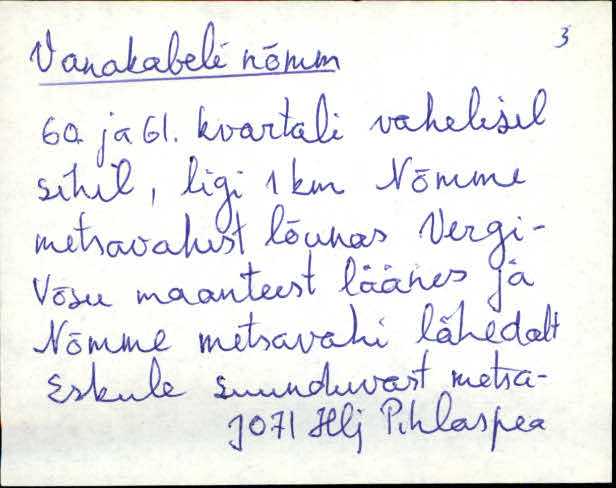 3
Vanakabeli nõmm
60. ja 61. kvartali vahelisel
sihil, ligi 1 km Nõmme
metsavahist lõunas Vergi-
Võsu maanteest läänes ja
Nõmme metsavahi lähedalt
Eskule suunduvast metsa-
J071 Hlj Pihlaspea